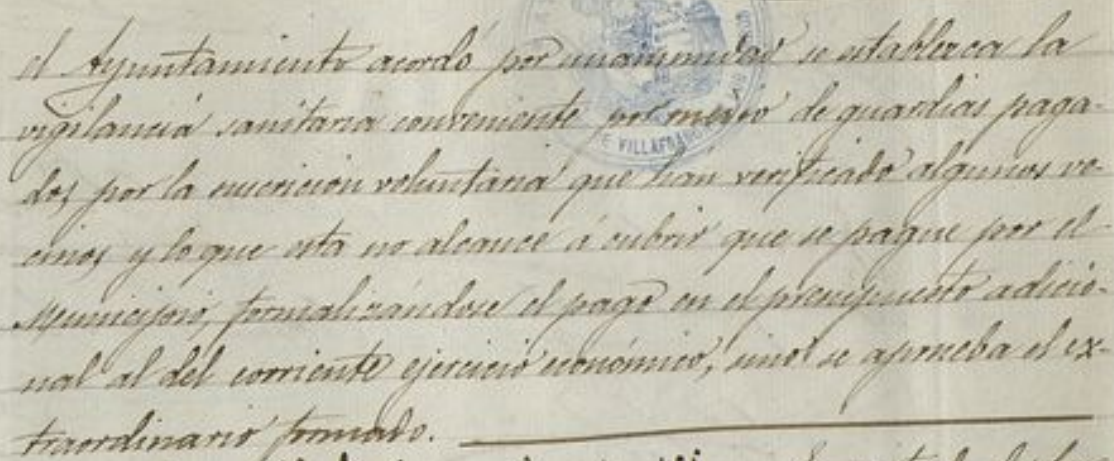 el Ayuntamiento acordó por unanimidad se establezca la
vigilancia sanitaria conveniente por medio de guardias paga-
dos, por la suscrición voluntaria que han verificado algunos ve-
cinos, y lo que esta no alcance á cubrir que se pague por el
Municipio, formalizándose el pago en el presupuesto adicio-
nal al del corriente ejercicio económico, sinó se aprueba el ex-
traordinario formado.
DE VILLAFRAN